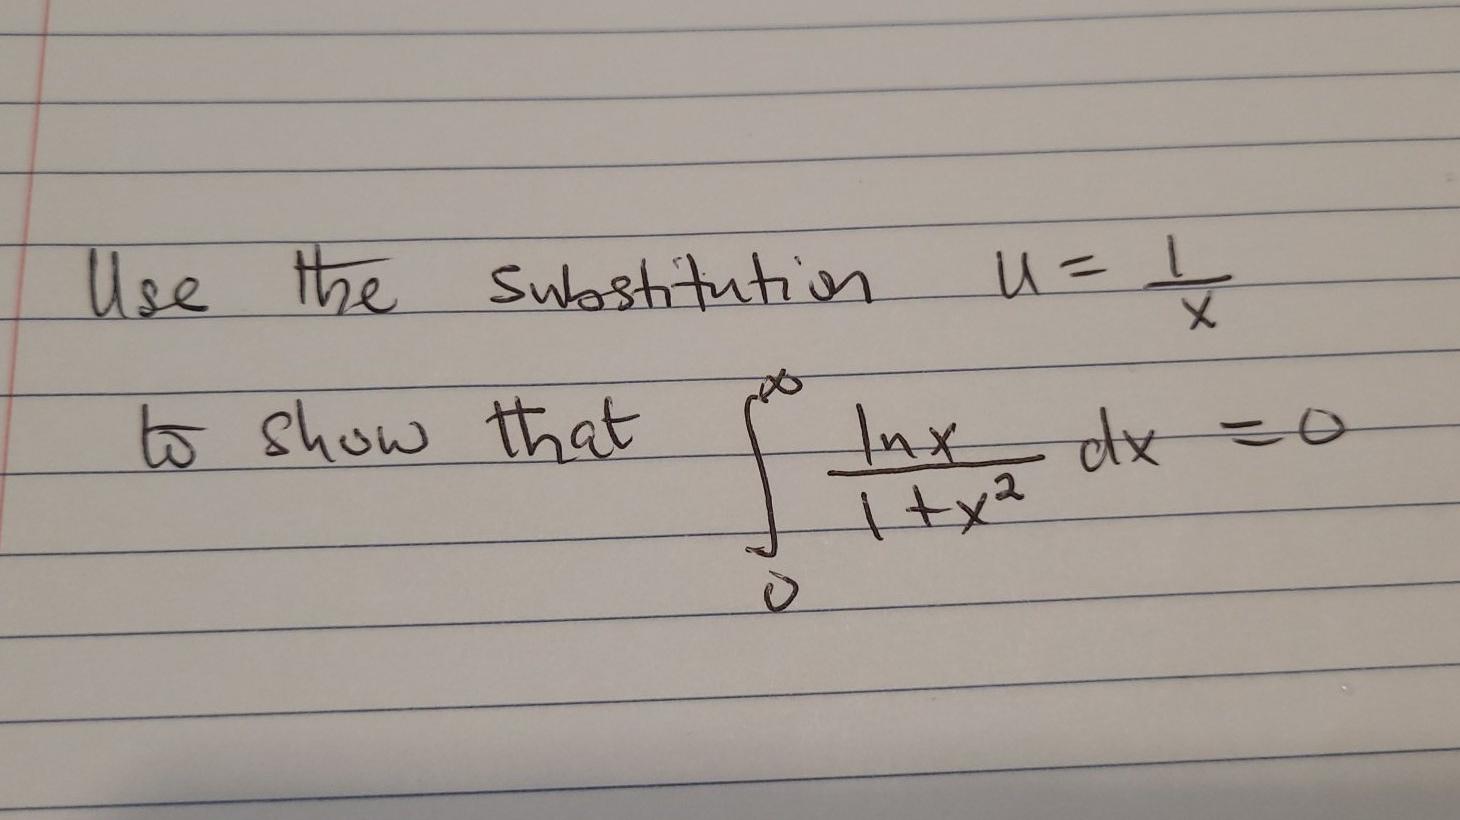 Use the substitution u = 1/x
to show that ∫₀^∞ ln x/(1+x²) dx = 0